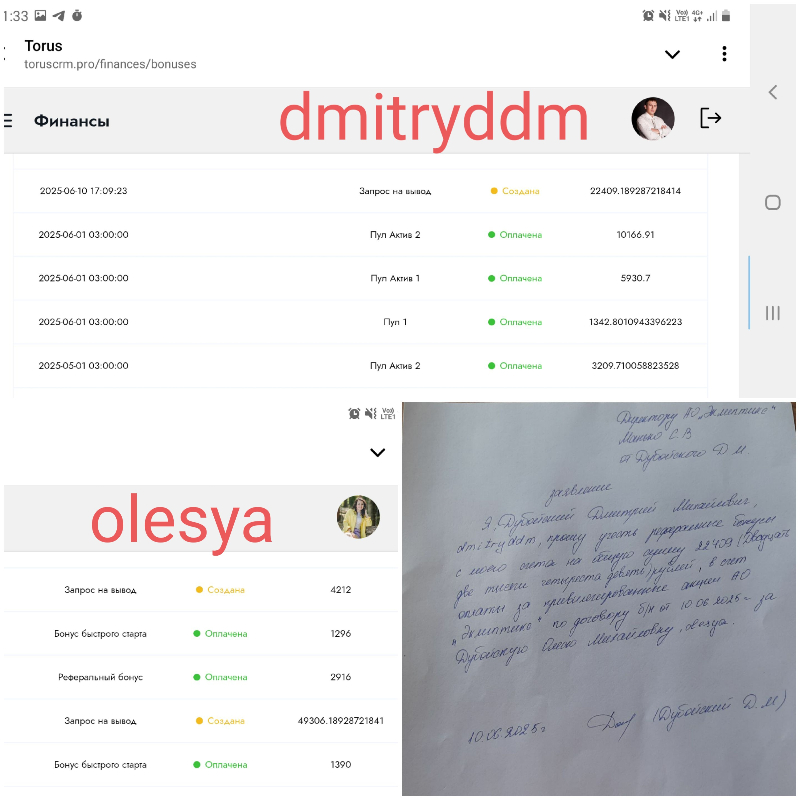 1:33
Vo)) 4G+
LTE1
Torus
toruscrm.pro/finances/bonuses
Финансы
dmitryddm
2025-06-10 17:09:23 Запрос на вывод Создана 22409.189287218414
2025-06-01 03:00:00 Пул Актив 2 Оплачена 10166.91
2025-06-01 03:00:00 Пул Актив 1 Оплачена 5930.7
2025-06-01 03:00:00 Пул 1 Оплачена 1342.8010943396223
2025-05-01 03:00:00 Пул Актив 2 Оплачена 3209.710058823528
Vo))
LTE1
olesya
Запрос на вывод Создана 4212
Бонус быстрого старта Оплачена 1296
Реферальный бонус Оплачена 2916
Запрос на вывод Создана 49306.18928721841
Бонус быстрого старта Оплачена 1390
Директору АО "Эклиптика"
Манько С.В
от Дубойского Д.М.
заявление
Я, Дубойский Дмитрий Михайлович,
dmitryddm, прошу учесть реферальные бонусы
с моего счета на общую сумму 22409 (Двадцать
две тысячи четыреста девять) рублей, в счет
оплаты за привилегированные акции АО
"Эклиптика" по договору б/н от 10.06.2025г за
Дубойскую Олесю Михайловну, olesya.
10.06.2025г (Дубойский Д.М)